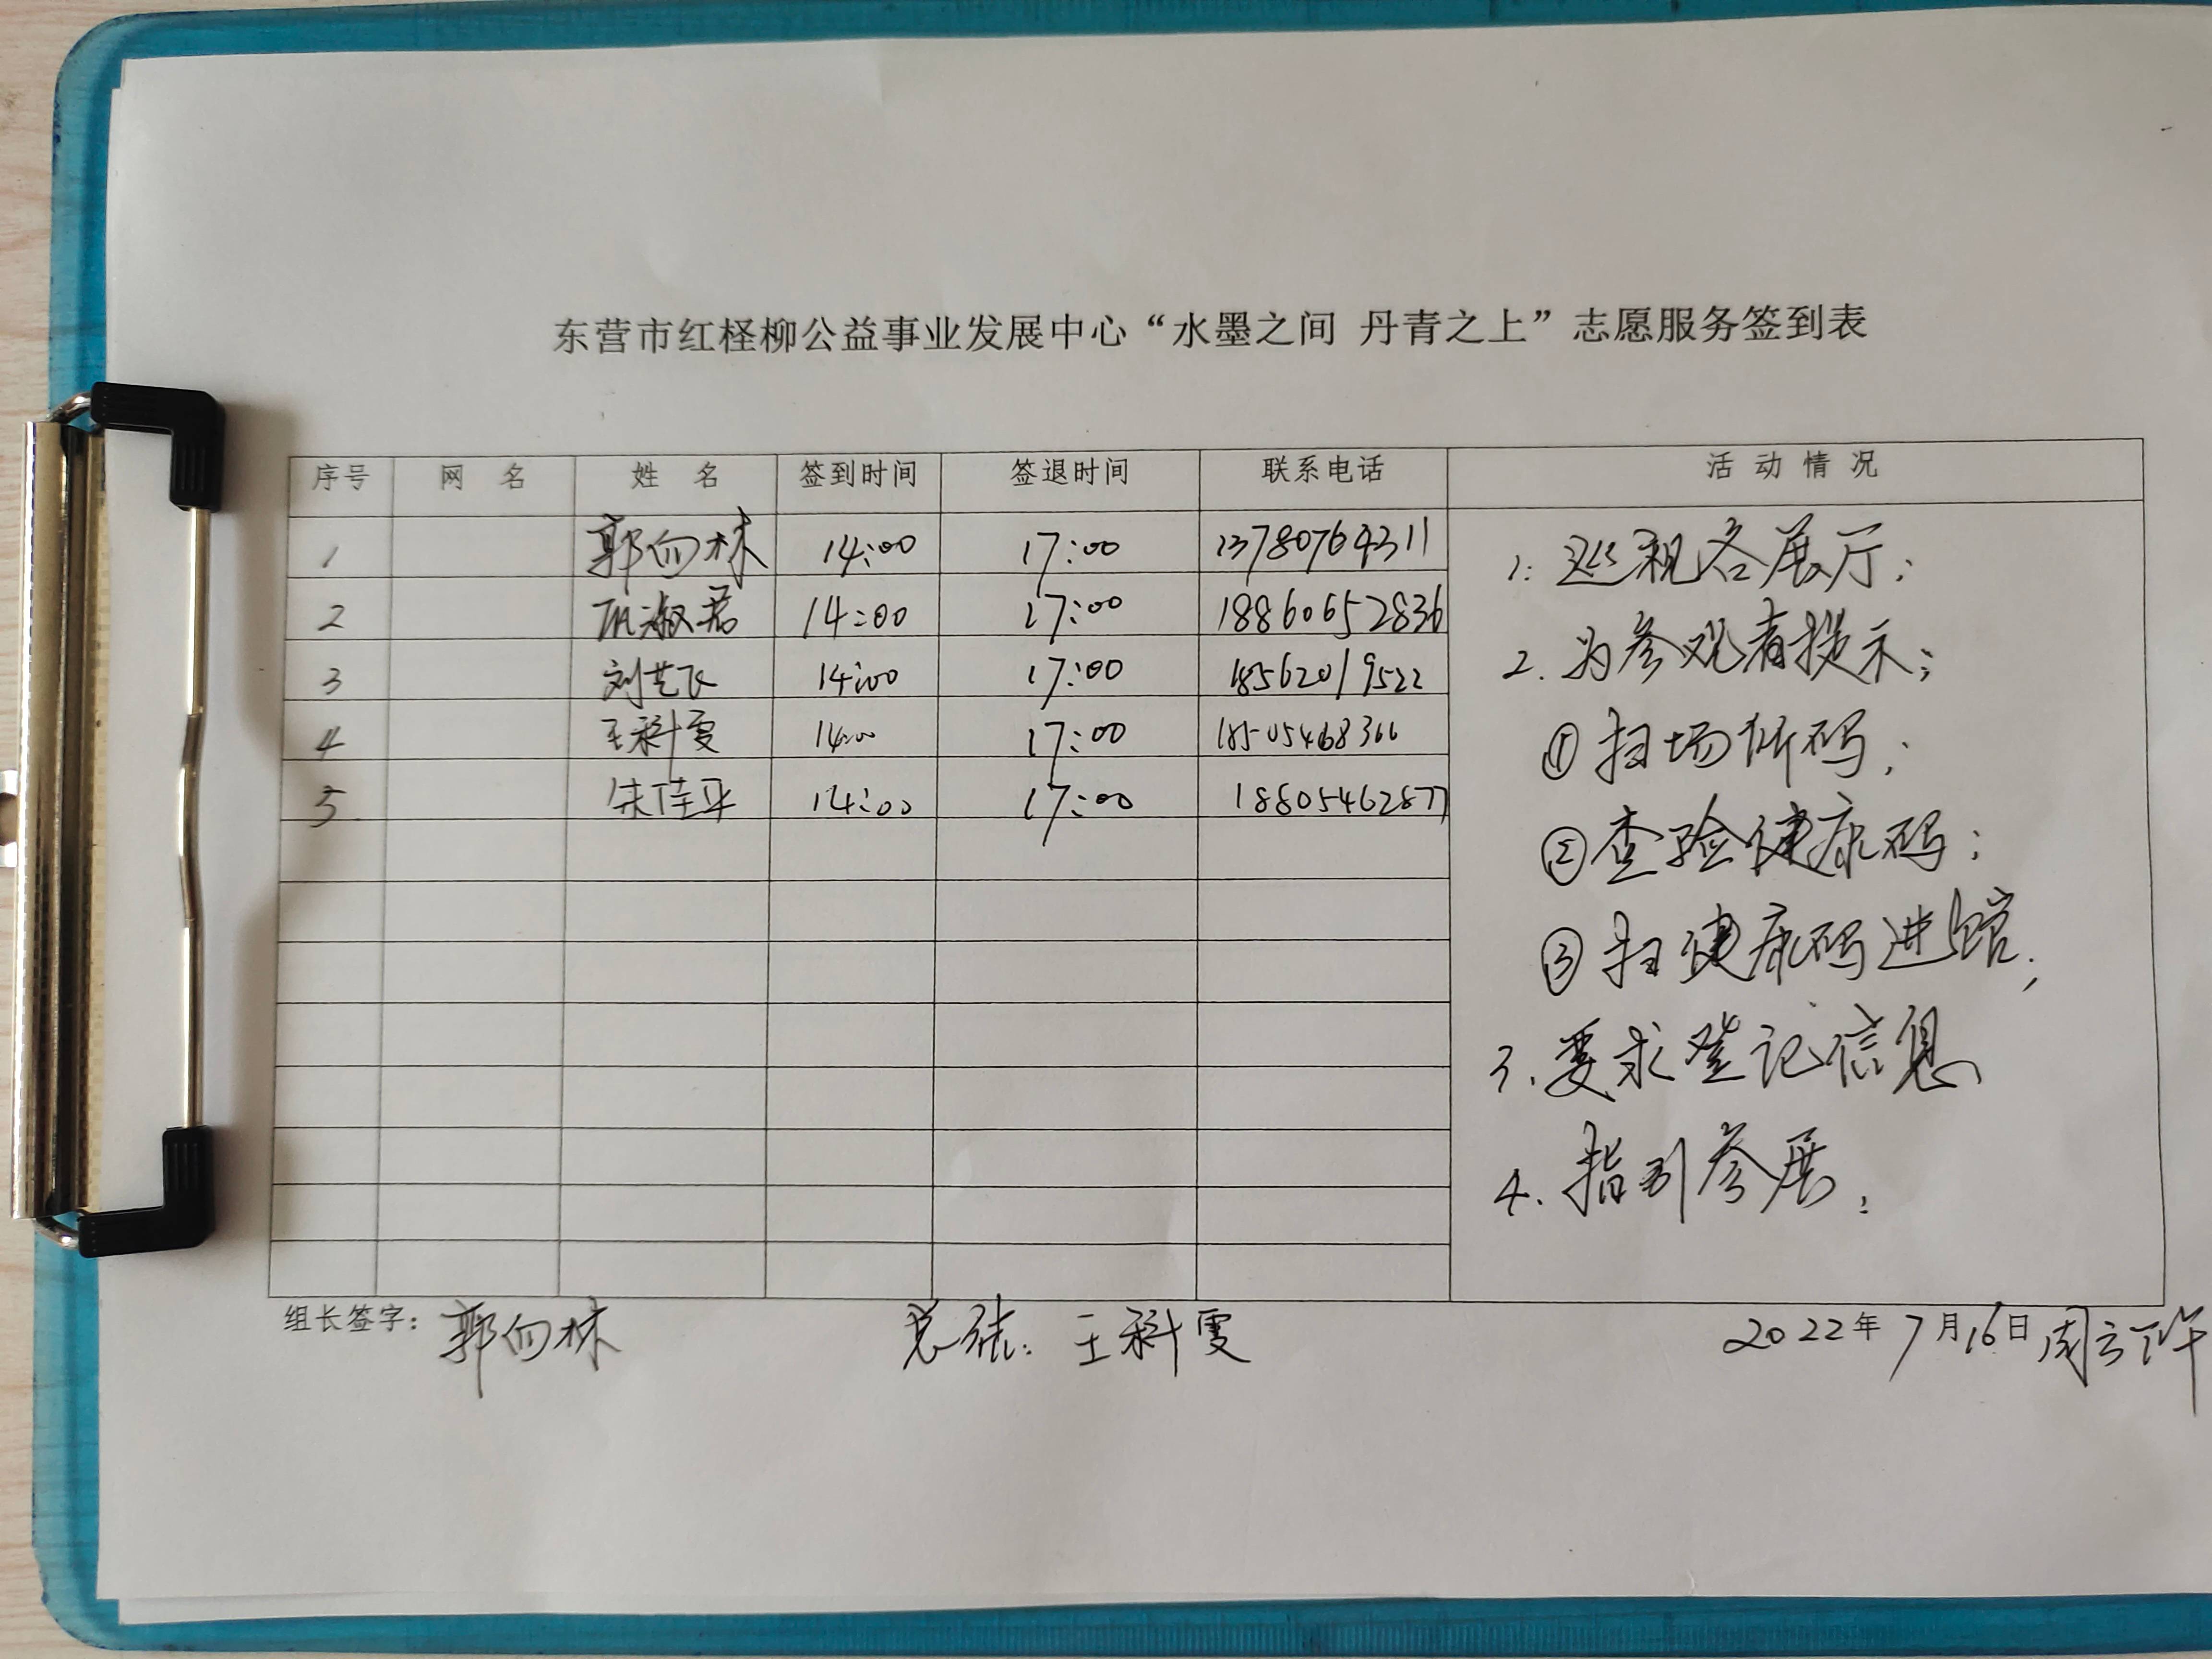 东营市红柽柳公益事业发展中心“水墨之间 丹青之上”志愿服务签到表
序号 网 名 姓 名 签到时间 签退时间 联系电话 活 动 情 况
1 郭向林 14:00 17:00 13780764311
2 淑君 14:00 17:00 18860652836
3 刘艺飞 14:00 17:00 18562019522
4 王科雯 14:00 17:00 18505468366
5 朱佳平 14:00 17:00 18805462877
1. 巡视各展厅;
2. 为参观者提示;
① 扫场所码;
② 查验健康码;
③ 扫健康码进馆;
3. 要求登记信息
4. 指引参展.
组长签字: 郭向林 总结: 王科雯 2022年7月16日 周六下午